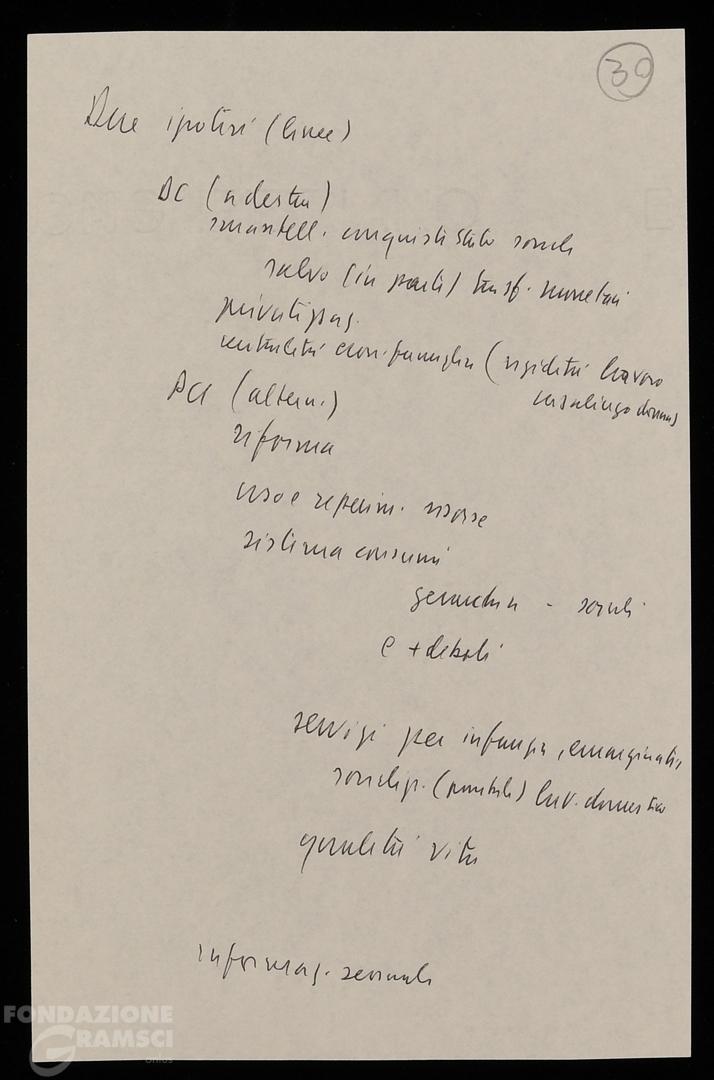 30
Due ipotesi (linee)
DC (a destra)
smantell. conquiste Stato sociale
salvo (in parte) trasf. monetari
privatizzaz.
centralità econ. famiglia (rigidità lavoro
casalingo donna)
PCI (altern.)
riforma
uso e repérim. risorse
sistema consumi
gerarchia - sociali
e + deboli
servizi per infanzia, emarginati,
socializz. (parziale) lav. domestico
qualità vita
informaz. sessuale
FONDAZIONE
GRAMSCI
onlus